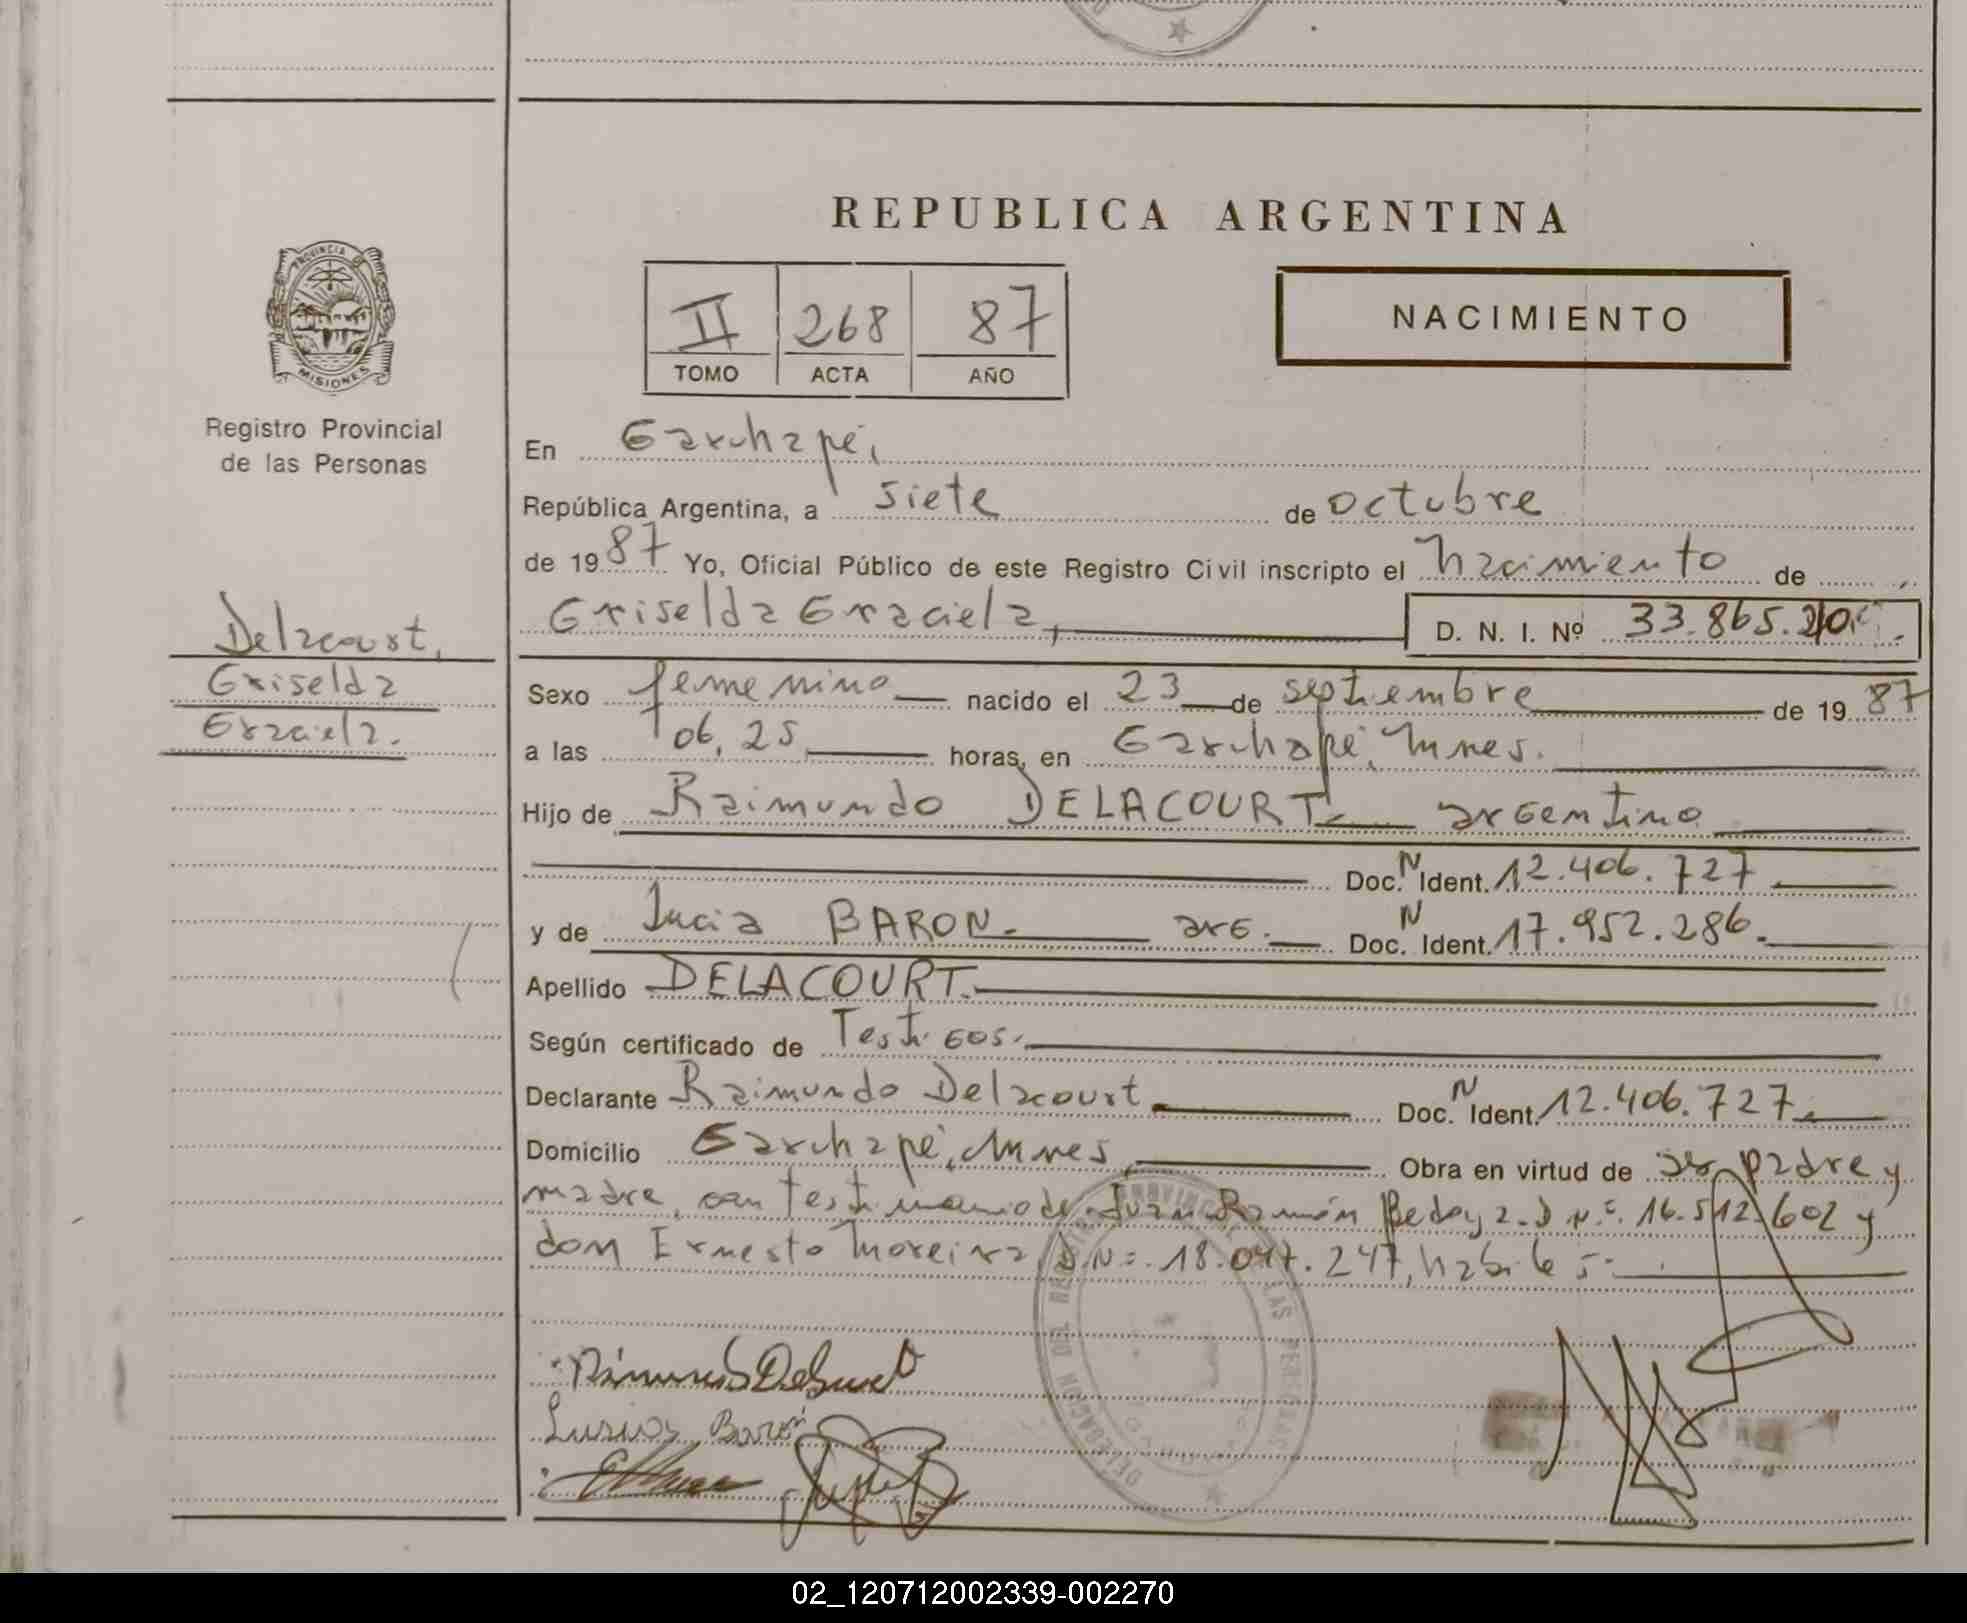 REPUBLICA ARGENTINA
PROVINCIA DE
MISIONES
II 268 87
TOMO ACTA AÑO
NACIMIENTO
Registro Provincial
de las Personas
En Garuhapé,
República Argentina, a siete de octubre
de 1987 Yo, Oficial Público de este Registro Civil inscripto el nacimiento de
Griselda Graciela, D. N. I. Nº 33.865.
Delacourt,
Griselda
Graciela.
Sexo femenino nacido el 23 de septiembre de 1987
a las 06,25 horas, en Garuhapé, Mnes.
Hijo de Raimundo DELACOURT. argentino
Doc. N Ident. 12.406.727
y de Lucia BARON. arg. Doc. N Ident. 17.952.286.
Apellido DELACOURT.
Según certificado de Testigos.
Declarante Raimundo Delacourt Doc. N Ident. 12.406.727.
Domicilio Garuhapé, Mnes, Obra en virtud de ser padre y
madre, con testimonio de Juan Ramón Bedoya. D N.º. 16.512.602 y
don Ernesto Moreira, D.Nº. 18.047.247, hábiles.
DELEGACION DEL REGISTRO PROVINCIAL DE LAS PERSONAS
02_120712002339-002270